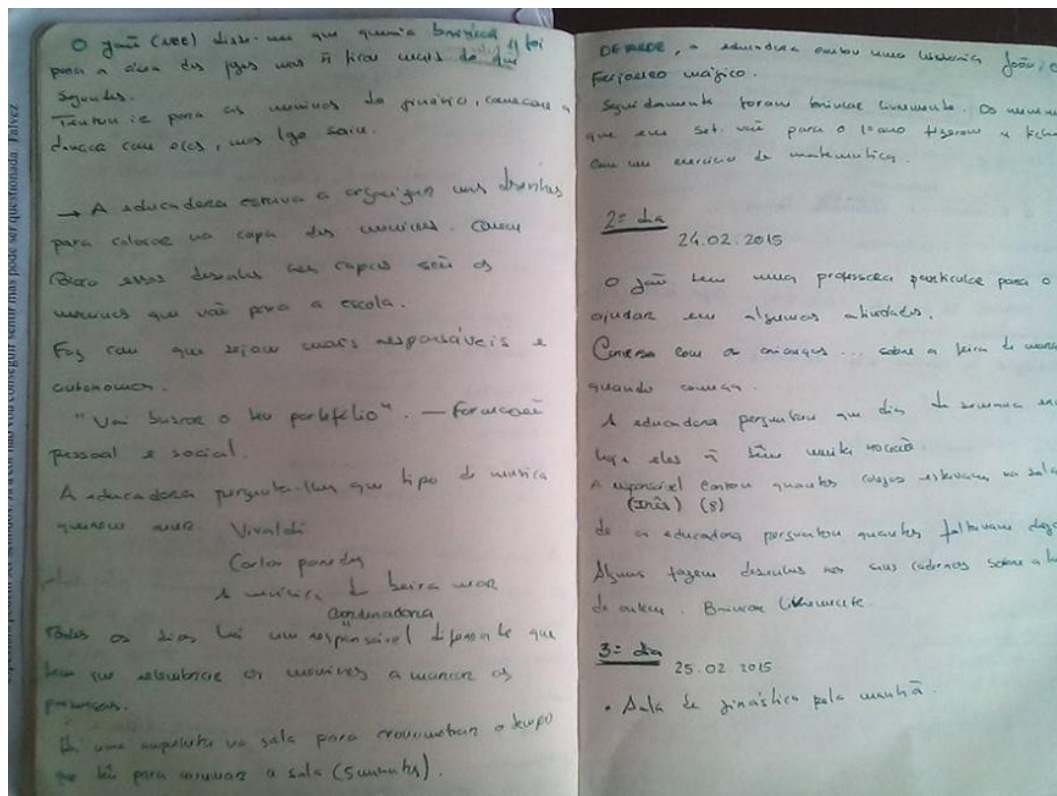 O João (NEE) disse-me que queria brincar e foi
para a área dos jogos mas ñ ficou mais do que
segundos.
Tentou ir para os meninos do ginásio, começou a
dançar com eles, mas logo saiu.
→ A educadora estava a organizar uns desenhos
para colocar na capa dos meninos. Quem
coloca esses desenhos nas capas são os
meninos que vão para a escola.
Faz com que sejam mais responsáveis e
autonomos.
"Vai buscar o teu portefólio". — Formação
pessoal e social.
A educadora pergunta-lhes que tipo de musica
querem ouvir. Vivaldi
Carlos paredes
A música de beira mar
coordenadora
Todos os dias há um responsável diferente que
tem que relembrar os meninos a marcar as
presenças.
Há uma ampulheta na sala para cronometrar o tempo
que têm para arrumar a sala (5 minutos).
DE TARDE, a educadora contou uma historia João, o
Feijoeiro mágico.
Seguidamente foram brincar livremente. Os
que em set. vão para o 1º ano fizeram a
com um exercício de matemática.
2º dia
24.02.2015
O João tem uma professora particular para o
ajudar em algumas atividades.
Conversa com as crianças ... sobre a feira de
quando começa.
A educadora perguntou que dia da semana era
hoje eles ñ têm muita noção.
A responsável contou quantos colegas estavam na sala
(Inês) (8)
de a educadora perguntou quantos faltavam
Alguns fazem desenhos nos seus cadernos sobre a
de ontem. Brincar livremente.
3º dia
25.02.2015
• Aula de ginástica pela manhã.